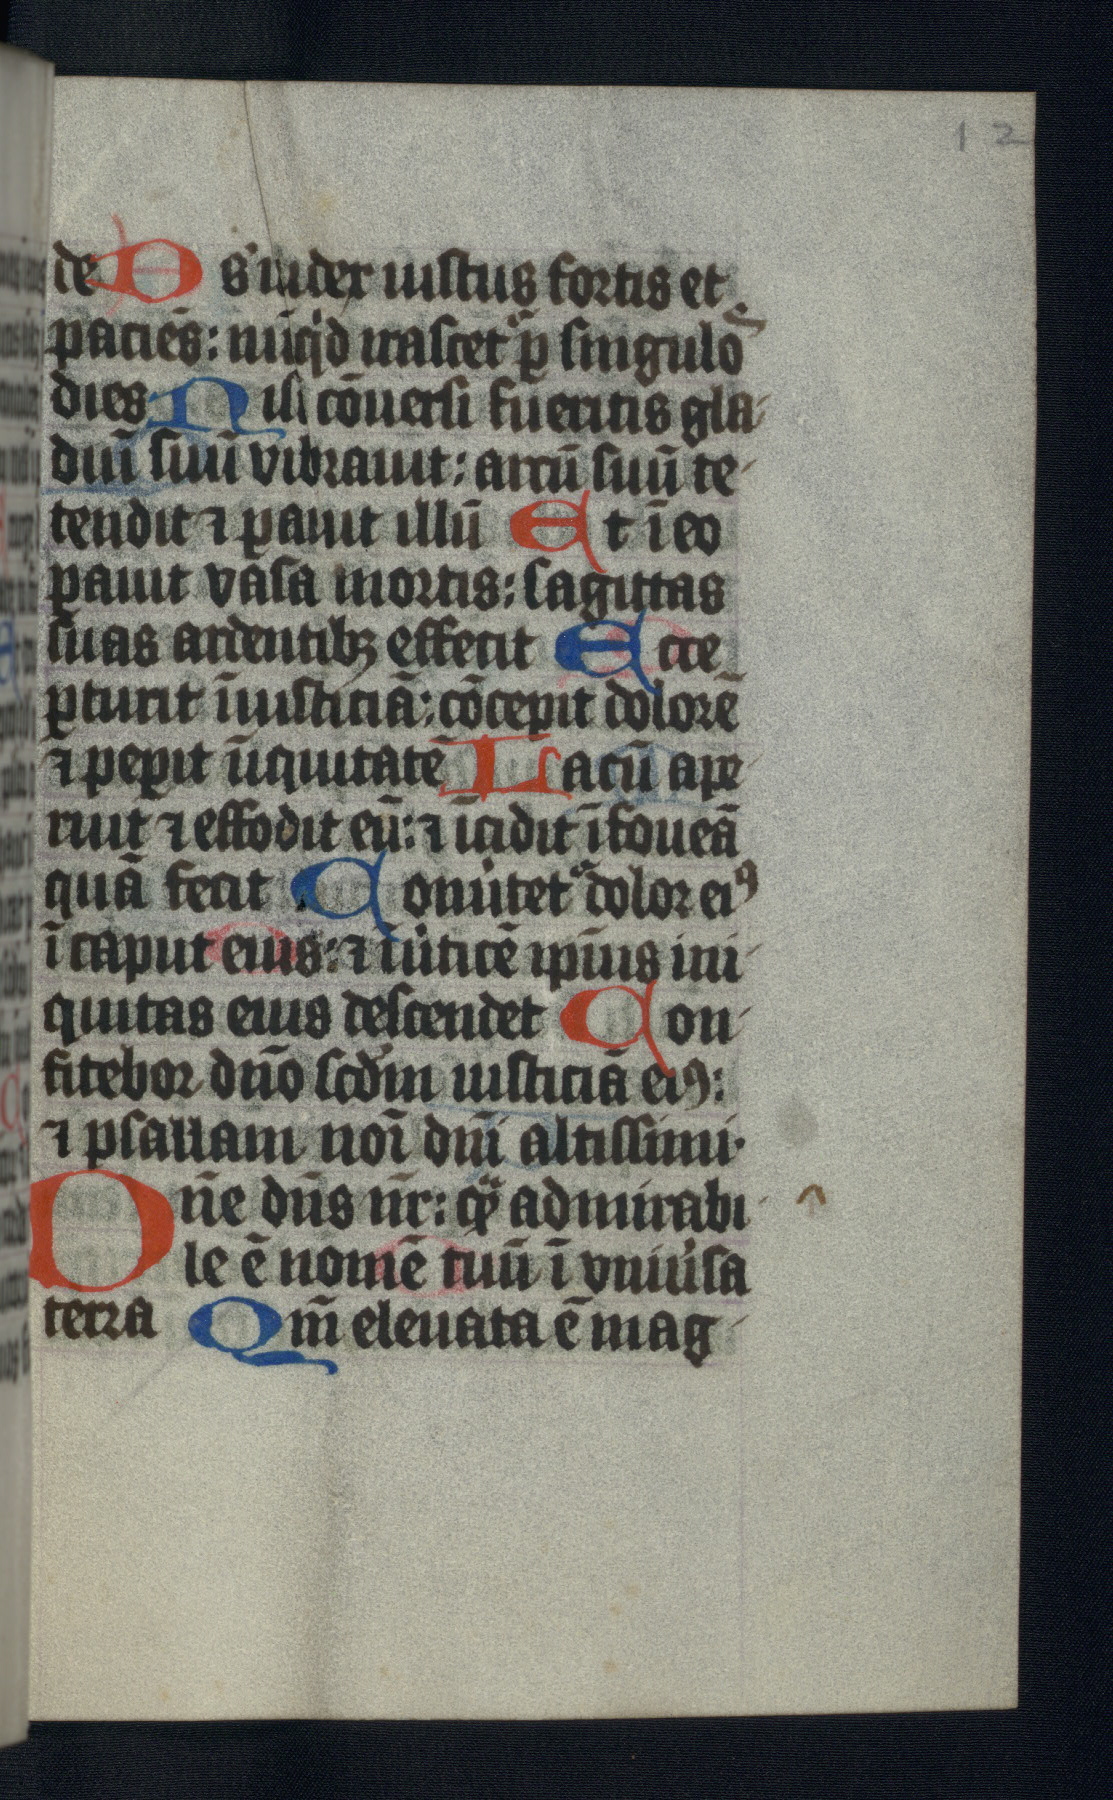 12
de Ds iudex iustus fortis et
paciēs: nūqd irascet p singulos
dies Nisi cōuersi fueritis gla-
diū suū vibrauit: arcū suū te-
tendit ⁊ pauit illū Et ī eo
pauit vasa mortis: sagittas
suas ardentibꝫ effecit Ecce
ꝑturit īiusticiā: cōcepit dolorē
⁊ peꝑit īiquitatē Lacū ape-
ruit ⁊ effodit eū: ⁊ īcidit ī foueā
quā fecit Conūtet dolor eiꝰ
ī caput eius: ⁊ ī ūticē ipīus ini-
quitas eius descendet Con-
fitebor dño scdm iusticiā eiꝰ:
⁊ psallam noī dñi altissimi.
Dñe dñs nr̄: qͣ admirabi-
le ē nomē tuū ī vniūsa
terra Qm̄ eleuata ē mag-